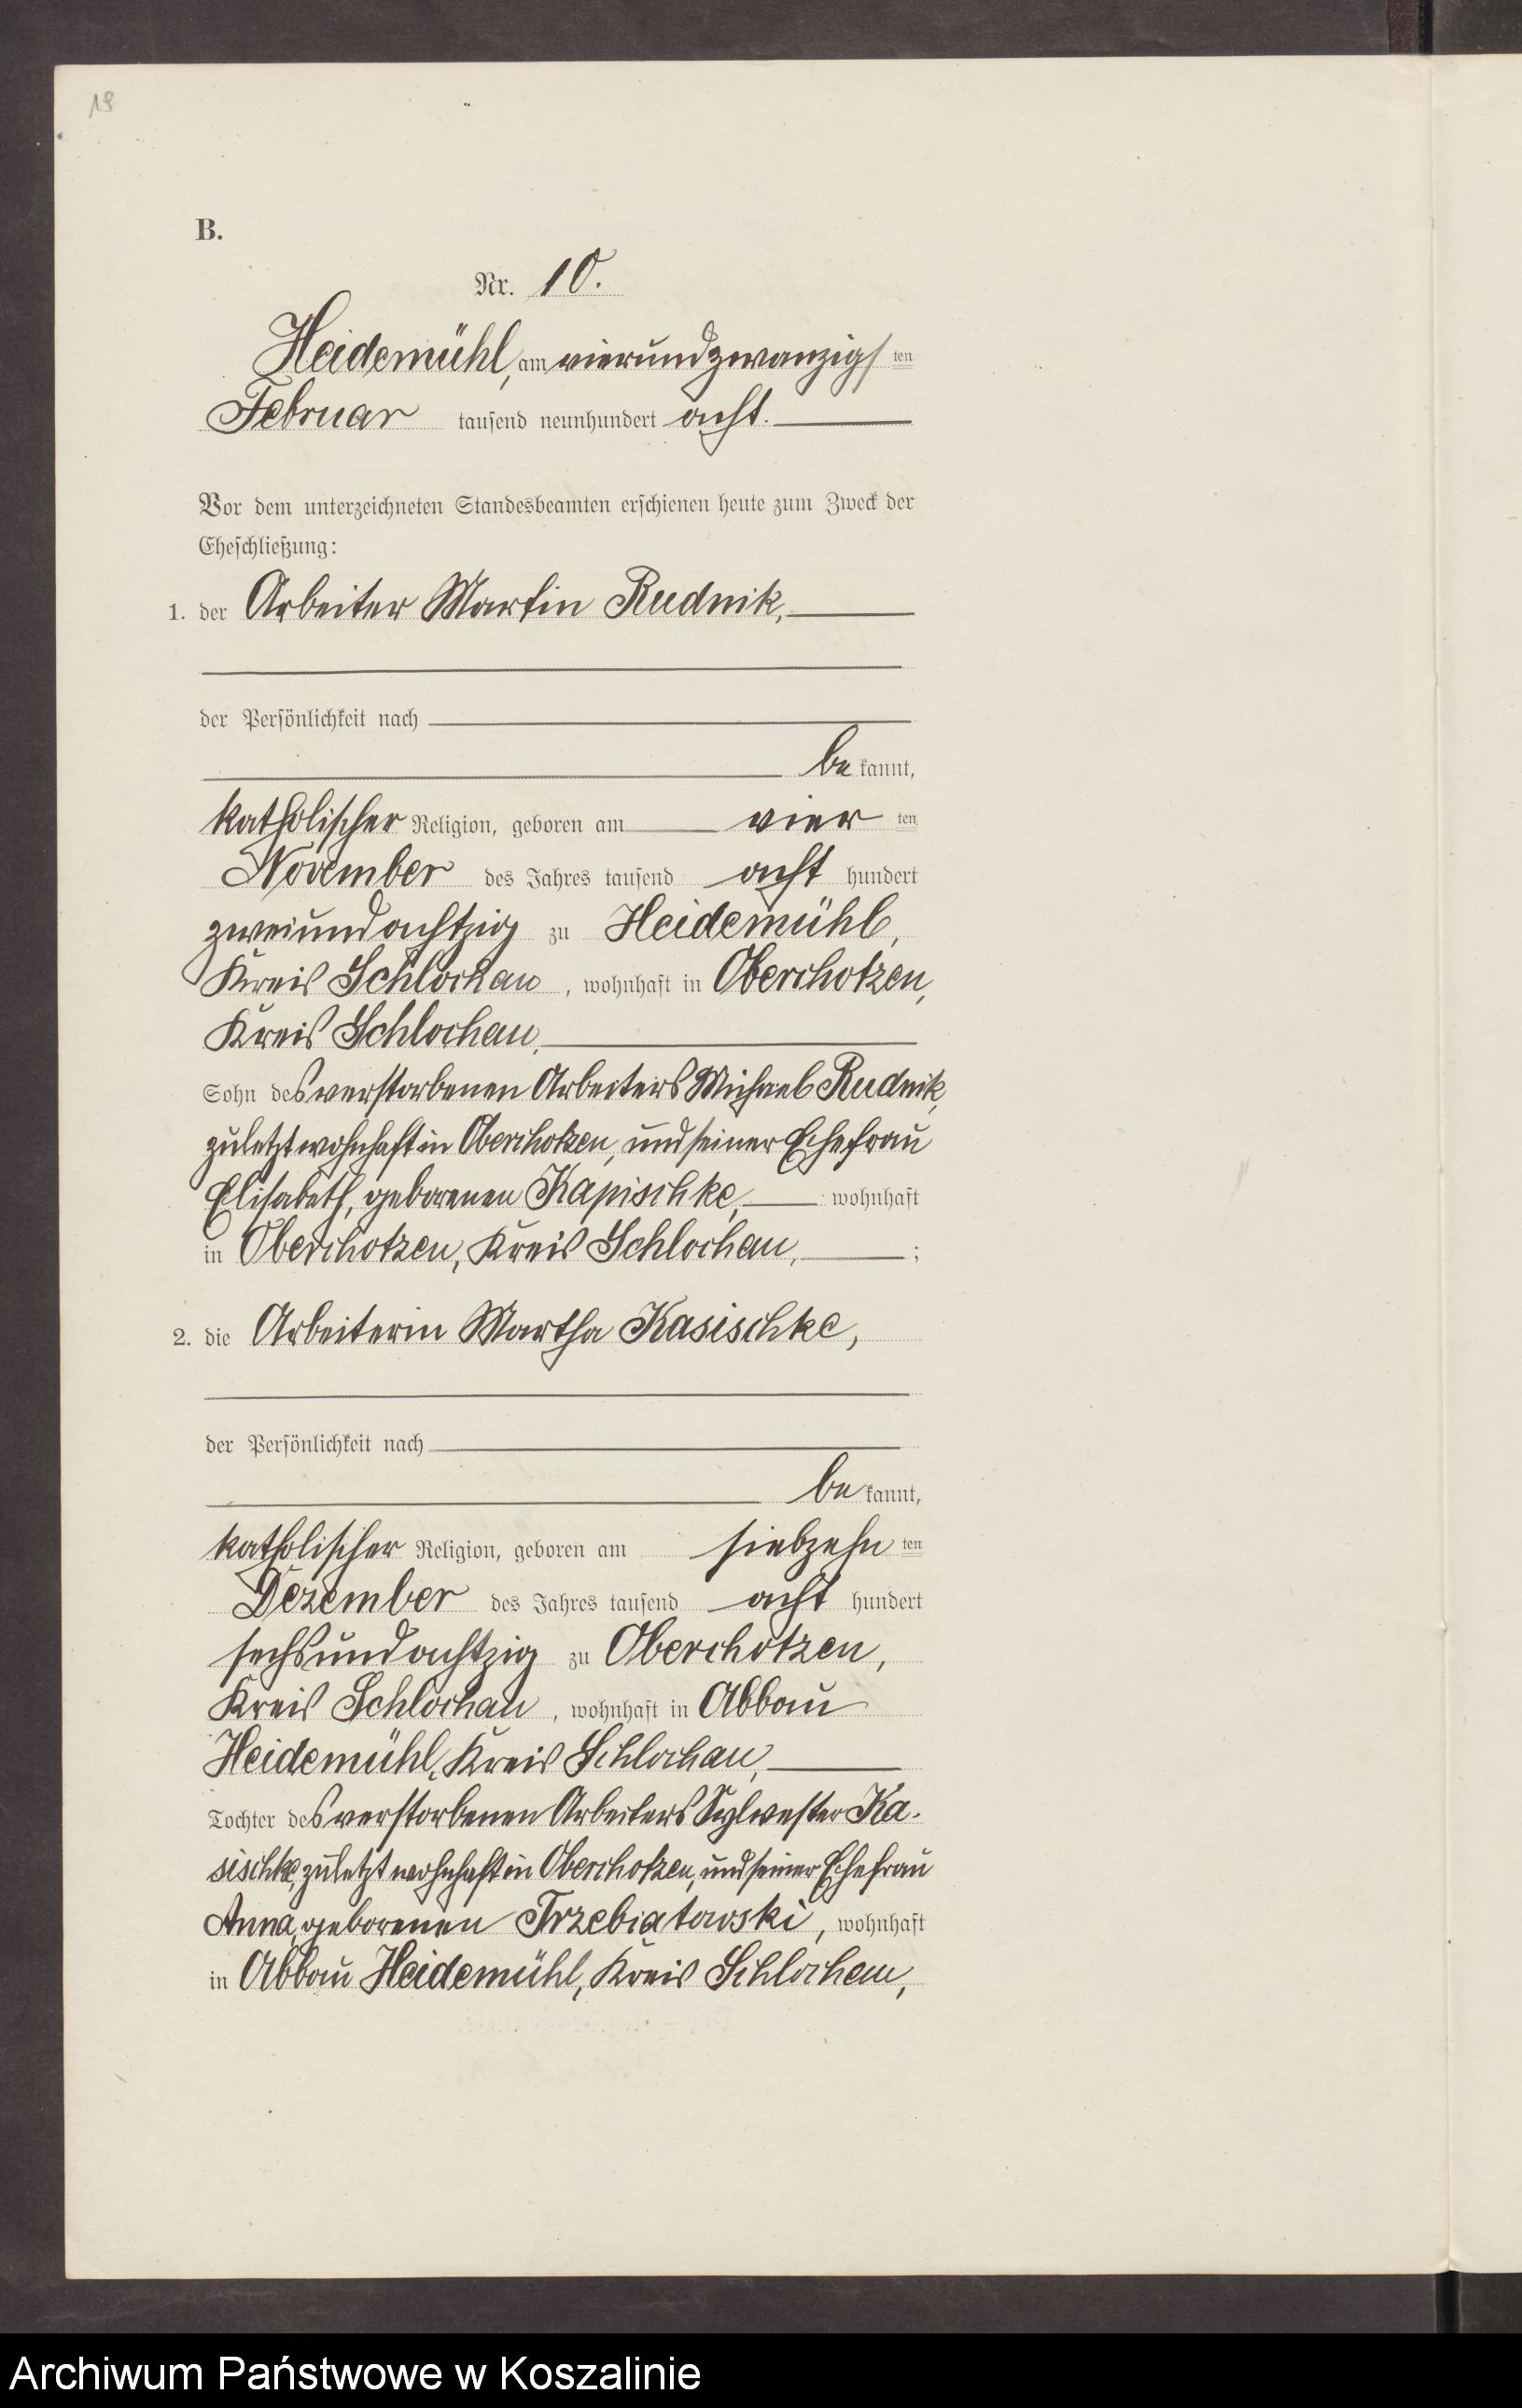 19
B.
Nr. 10.
Heidemühl, am vierundzwanzigsten
Februar tausend neunhundert acht.
Vor dem unterzeichneten Standesbeamten erschienen heute zum Zweck der
Eheschließung:
1. der Arbeiter Martin Rudnik,
der Persönlichkeit nach
be kannt,
katholischer Religion, geboren am vier ten
November des Jahres tausend acht hundert
zweiundachtzig zu Heidemühl,
Kreis Schlochau, wohnhaft in Oberchotzen,
Kreis Schlochau,
Sohn des verstorbenen Arbeiters Michael Rudnik,
zuletzt wohnhaft in Oberchotzen, und seiner Ehefrau
Elisabeth, geborenen Kapischke, wohnhaft
in Oberchotzen, Kreis Schlochau, ;
2. die Arbeiterin Martha Kasischke,
der Persönlichkeit nach
be kannt,
katholischer Religion, geboren am siebzehn ten
Dezember des Jahres tausend acht hundert
sechsundachtzig zu Oberchotzen,
Kreis Schlochau, wohnhaft in Abbau
Heidemühl, Kreis Schlochau,
Tochter des verstorbenen Arbeiters Sylwester Ka-
sischke, zuletzt wohnhaft in Oberchotzen, und seiner Ehefrau
Anna, geborenen Trzebiatowski, wohnhaft
in Abbau Heidemühl, Kreis Schlochau,
Archiwum Państwowe w Koszalinie